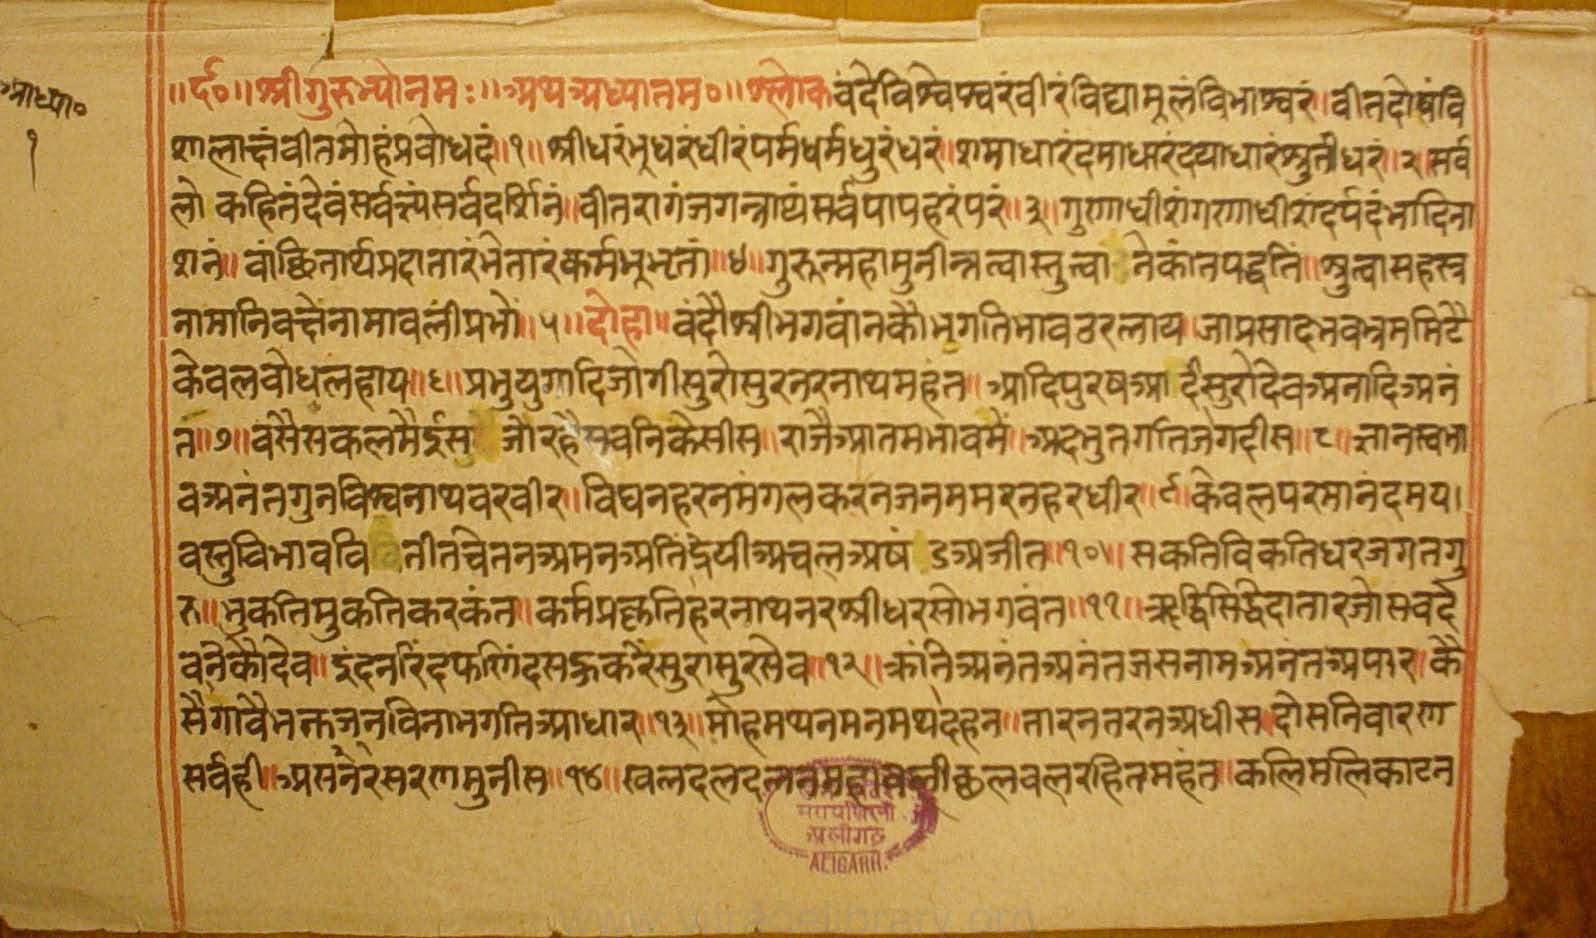 अाध्या०
१
॥र्द०॥श्रीगुरुभ्योनमः॥अथअध्यातम०॥श्लोकवंदेविश्वेश्वरंवीरंविद्यामूलंविभाश्वरं॥वीतदोषंवि
शालाक्षंवीतमोहंप्रवोधदं॥१॥श्रीधरंभूधरंधीरंपर्मधर्मधुरंधरं॥शमाधारंदमाधारंदयाधारंश्रुतीधरं॥२॥सर्व
लोकहितंदेवंसर्वज्ञ्यंसर्वदर्शिनं॥वीतरागंजगन्नाथंसर्वपापहरंपरं॥३॥गुणाधीशंगणाधीशंदर्पदंभादिना
शनं॥वांछितार्थप्रदातारंभेतारंकर्मभूभृतां॥४॥गुरुन्महामुनीन्नत्वास्तुत्वा नेकांतपद्धतिं॥श्रुत्वासहस्त्र
नामानिवक्षेनामावलींप्रभोः॥५॥दोहा॥वंदौश्रीभगवांनकौभगतिभावउरलाय॥जाप्रसादभवभ्रममिटै
केवलवोधलहाय॥६॥प्रभुयुगादिजोगीसुरोसुरनरनाथमहंत॥आदिपुरषआदीसुरोदेवअनादिअनं
त॥७॥वसैसकलमैईसु जोरहैसवनिकेसीस॥राजैआतमभावमैं॥अदभुतगतिजगदीस॥८॥ज्ञानस्वभा
वअनंतगुनविश्वनाथवरवीर॥विघनहरनमंगलकरनजनममरनहरधीर॥९॥केवलपरमानंदमय।
वस्तुविभाववि वितीतचेतनअमनअतिंद्रेयीअचलअषंडअजीत॥१०॥सकतिविकतिधरजगतगु
रु॥भुकतिमुकतिकरकंत॥कर्मप्रकृतिहरनाथनरश्रीधरसोभगवंत॥११॥ऋद्धिसिद्धिदातारजोसवदे
वनिकौदेव॥इंदनरिंदफणिंदसहुकरैसुरासुरसेव॥१२॥क्रांतिअनंतअनंतजसनामअनंतअपार॥कै
सैगावैभक्तजनविनाभगतिआधार॥१३॥मोहमथनमनमथदहन॥तारनतरनअधीस॥दोसनिवारण
सर्वही॥असरनसरणमुनीस॥१४॥खलदलदलनमहावलीछलवलरहितमहंत॥कलिमलिकाटन
अलीगढ
ALIGARH.